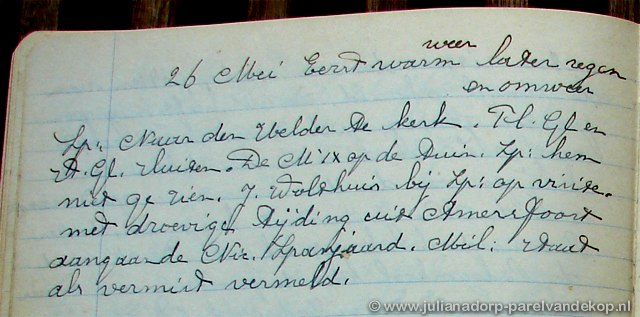 26 Mei Eerst warm weer later regen
en onweer
Sp: Naar den Helder te kerk. Tl. Gl en
A. Gl. sluiten. De M IX op de tuin. Sp: hem
niet ge zien. J. Wolthuis bij Sp: op visite.
met droevige tijding uit Amersfoort
aangaande Nic. Spanjaard. Mil: staat
als vermist vermeld.
© www.julianadorp-parelvandekop.nl